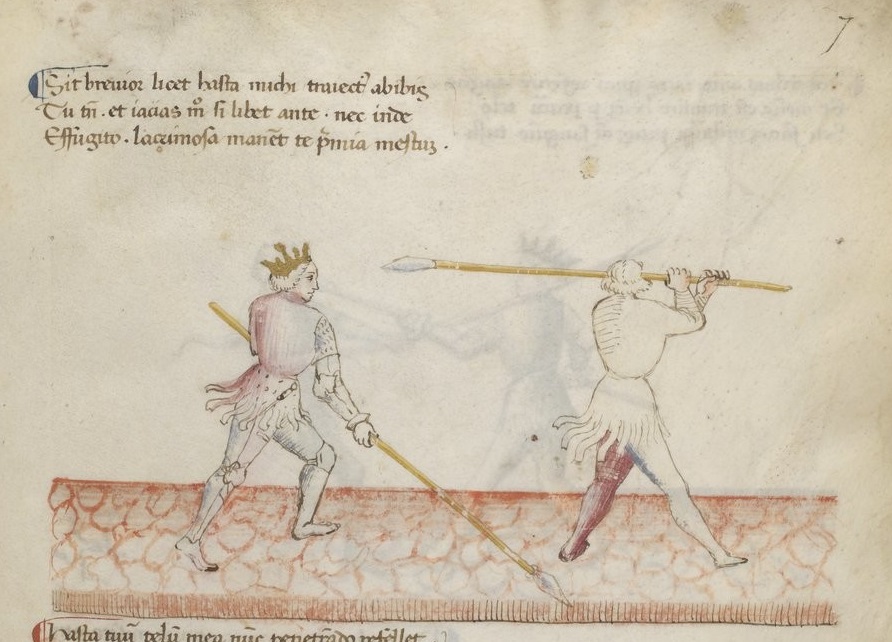 7
Sit breuior licet hasta michi traiect᷒ abibis
Tu tñ . et iacias m̊ si libet ante . nec inde
Effugito . lacrimosa manēt te p̄mia mestuȝ .
Hasta tuū telū mea nūc penetrādo refellet